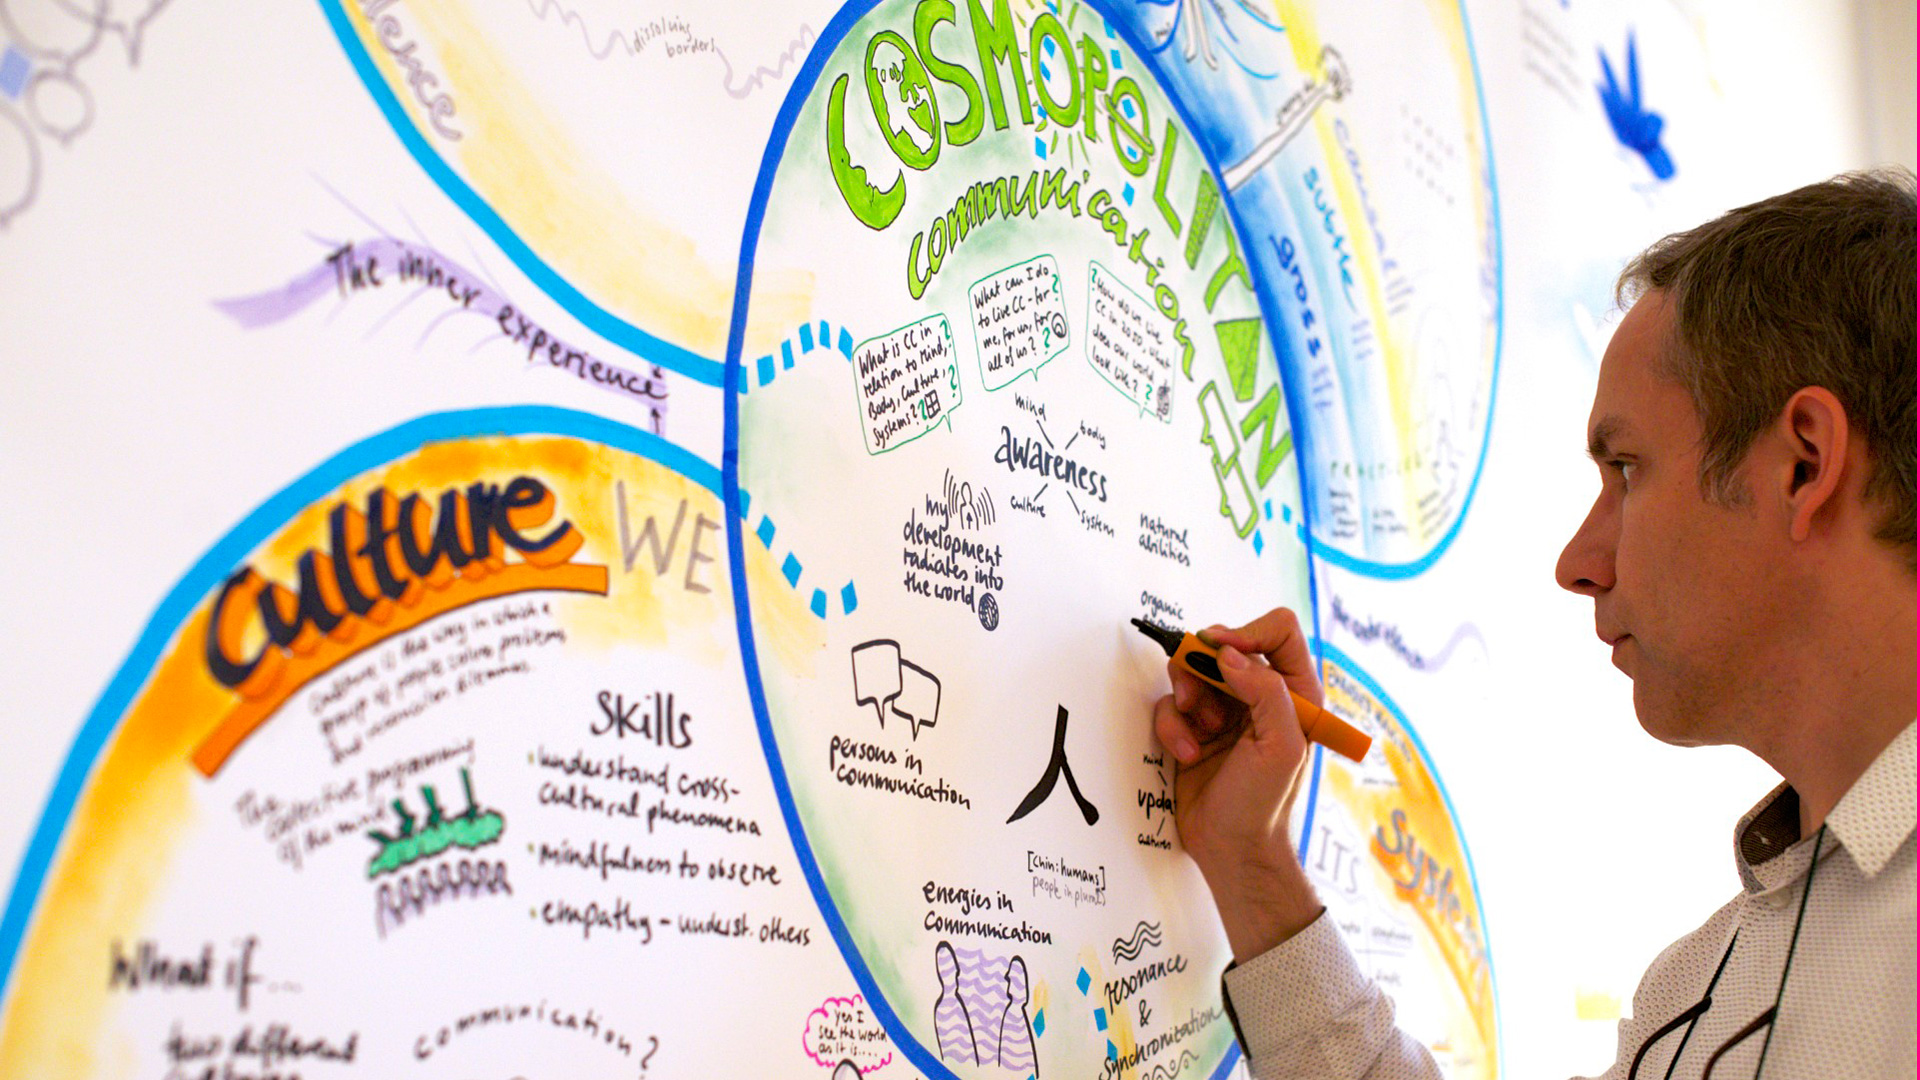 dissolving
borders
COSMOPOLITAN
communication
The inner experience
causal
subtle
gross
What is CC in
relation to Mind,
Body, Culture,
Systems?
What can I do
to live CC - for
me, for us, for
all of us?
? How do we live
CC in 2050, what
does our world
look like?
mind
body
awareness
culture
system
my
development
radiates into
the world
natural
abilities
organic
persons in
communication
人
[chin: humans]
people in plural
mind
upda
cultures
energies in
communication
resonance
&
synchronization
Culture
WE
Culture is the way in which a
group of people solve problems
and reconciles dilemmas.
The collective programming
of the mind
Skills
• understand cross-
cultural phenomena
• mindfulness to observe
• empathy - underst. others
What if...
two different
communication?
yes I
see the world
as it is....
ITS
Systems